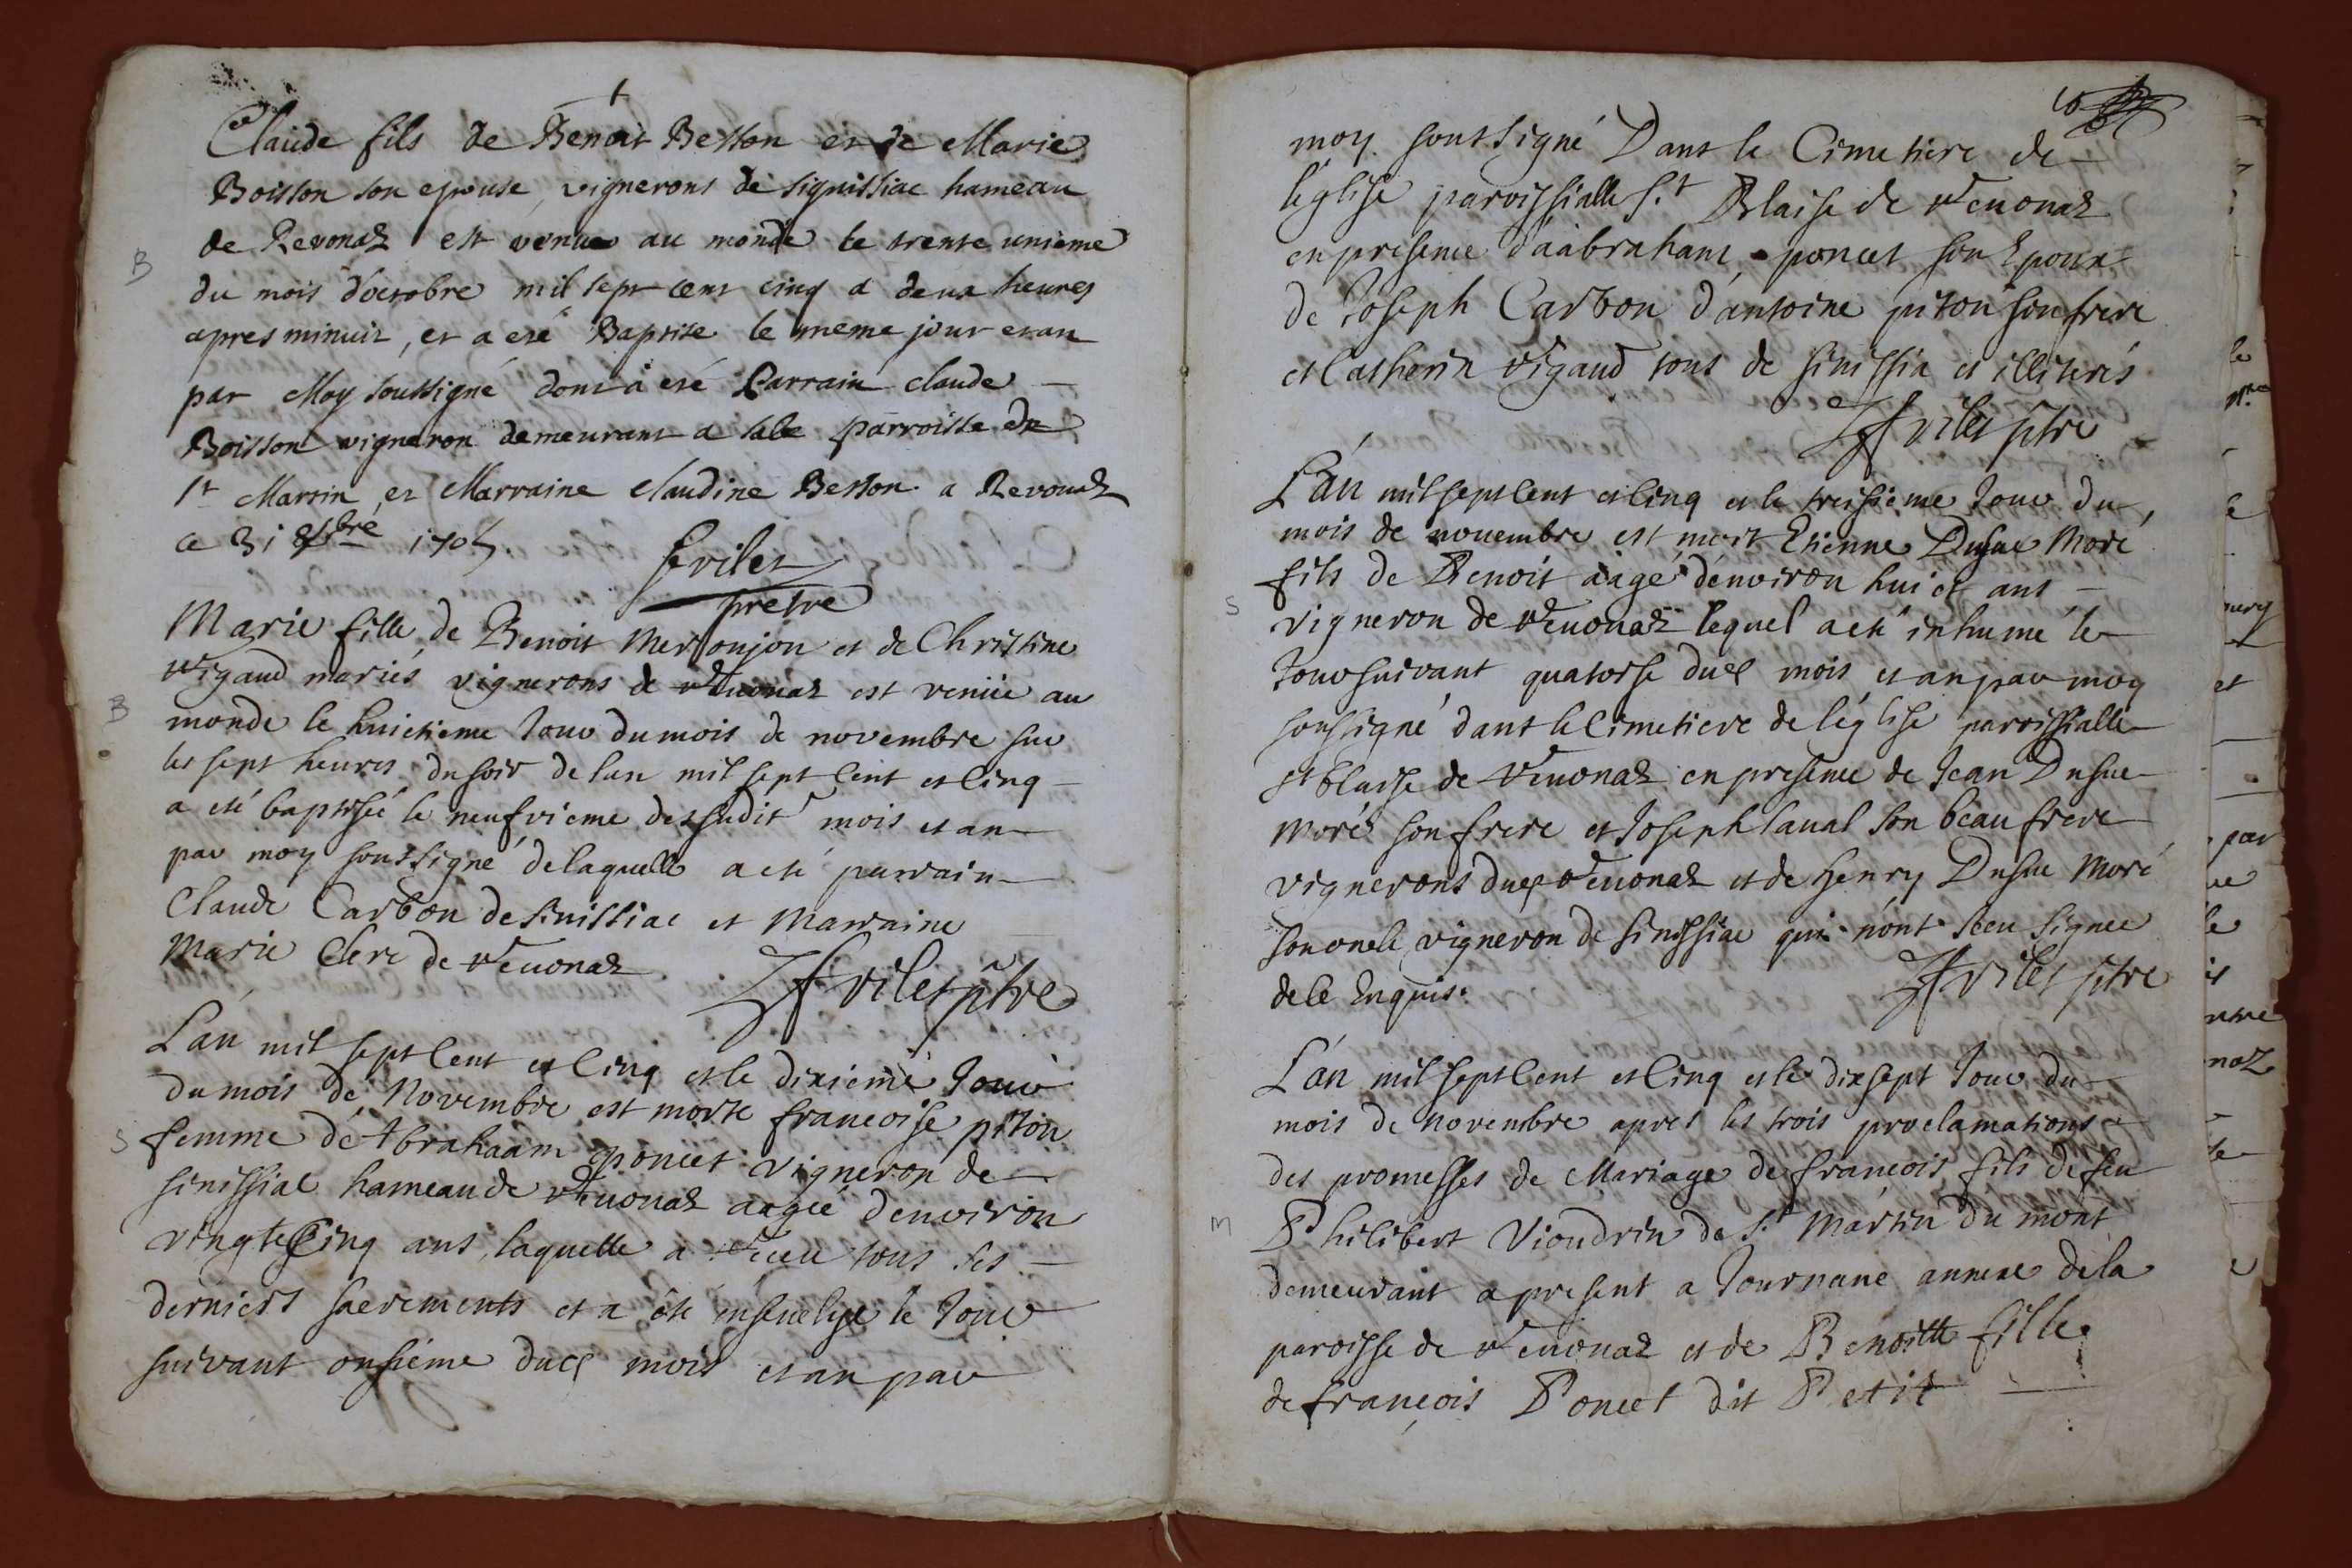 Claude fils de Benoit Besson et de Marie
Boisson son epouse, vignerons de signissiac hameau
de Revonaz est venue au monde le trente unieme
B
du mois d'octobre mil sept cent cinq a deux heures
apres minuit, et a eté Baptise le meme jour et an
par Moy soussigné dont à eté Parrain claude
Boisson vigneron demeurant a parroisse de
St Martin et Marraine claudine Besson a Revonaz
ce 31 8bre 1705.
frilet
pretre
Marie fille de Benoit Mersonjon et de Christine
rigaud mariés vignerons de revonaz est venüe au
B
monde le huictieme Jour du mois de novembre sur
les sept heures du soir de lan mil sept Cent et Cinq
a eté baptisée le neufvieme dessudit mois et an
par moy soussigné de laquelle a eté parrain
Claude Carbon de sinissiac et Marraine
Marie Clerc de revonaz
JFrilet ptre
L'an mil sept Cent et Cinq et le dixieme Jour
du mois de Novembre est morte francoise piton
S
femme de Abrahaam poncet vigneron de
sinissiac hameau de revonaz aagée d'environ
vingt et Cinq ans, laquelle a receu tous ses
derniers sacrements et a été ensevelye le Jour
suivant onsiéme duct mois et an par
moy soussigné Dans le Cimetiere de
l'église paroissialle St Blaise de revonaz
en presence d'aabraham poncet son Epoux
de Joseph Carbon d'antoine piton son frere
et Catherin rigaud tous de sinissia et illiterés
JFrilet ptre
L'an mil sept Cent et Cinq et le treisieme Jour du
mois de novembre est mort Etienne Dusuc Moré
fils de Benoit aagé d'environ huict ans
S
vigneron de revonaz lequel a eté inhumé le
Jour suivant quatorse duct mois et an par moy
soussigné dans le Cimetiere de léglise parroissialle
st blaise de revonaz en presence de Jean Dusuc
moré son frere et Joseph laval son beau frere
vignerons duct revonaz et de henry Dusuc Moré
son oncle vigneron de sinissiac qui n'ont sceu signer
de ce Enquis.
JFrilet ptre
L'an mil sept Cent et Cinq et le dix sept Jour du
mois de Novembre apres les trois proclamations
des promesses de Mariage de francois fils de feu
M
Philibert Vioudrin de St Martin du mont
demeurant a present a Journane annexe de la
paroisse de revonaz et de Benoitte fille
de françois Poncet dit Petit